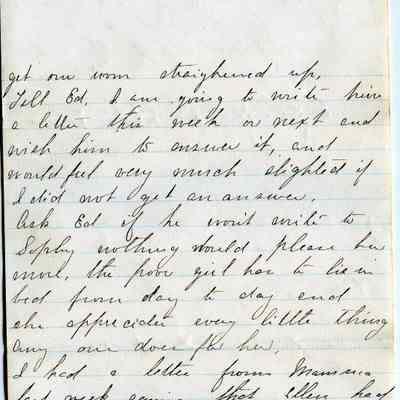 get our room straightened up,
Tell Ed. I am going to write him
a letter this week or next and
wish him to answer it, and
would feel very much slighted if
I did not get an answer.
Ask Ed if he won't write to
Sophy nothing would please her
more, the poor girl has to lie in
bed from day to day and
she appreciates every little thing
any one does for her,
I had a letter from Mamma
last week saying that Ellen had